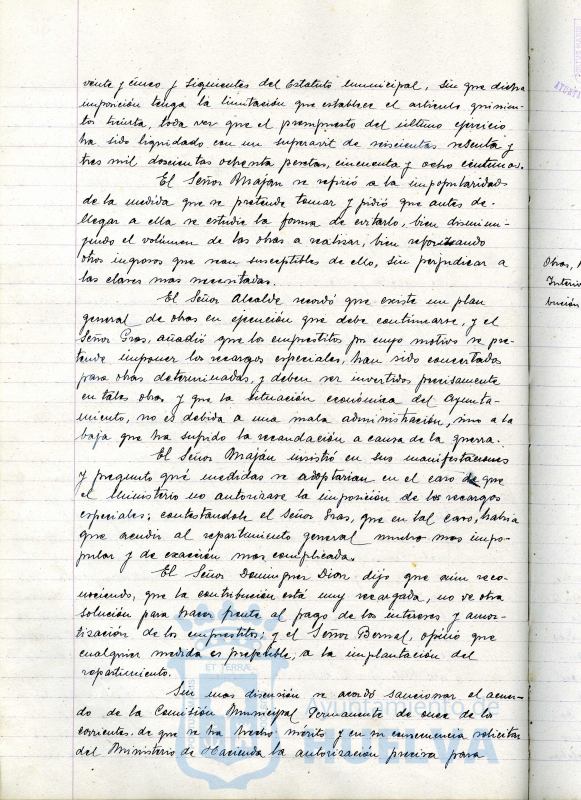 veinte y cinco y siguientes del Estatuto municipal, sin que dicha
imposición tenga la limitación que establece el artículo quinien-
tos treinta, toda vez que el presupuesto del último ejercicio
ha sido liquidado con un superavit de seiscientas sesenta y
tres mil doscientas ochenta pesetas, cincuenta y ocho centimos.
El Señor Maján se refirió a la impopularidad
de la medida que se pretende tomar y pidió que antes de
llegar a ella se estudie la forma de evitarlo, bien disminu-
yendo el volúmen de las obras a realizar, bien reforzando
otros ingresos que sean susceptibles de ello, sin perjudicar a
las clases mas necesitadas.
El Señor Alcalde recordó que existe un plan
general de obras en ejecución que debe continuarse, y el
Señor Gras, añadió que los empréstitos por cuyo motivo se pre-
tende imponer los recargos especiales, han sido concertados
para obras determinadas, y deben ser invertidos precisamente
en tales obras y que la situación económica del Ayunta-
miento, no es debida a una mala administración, sino a la
baja que ha sufrido la recaudación a causa de la guerra.
El Señor Maján insistió en sus manifestaciones
y preguntó qué medidas se adoptarian en el caso de que
el Ministerio no autorizase la imposición de los recargos
especiales; contestándole el Señor Gras, que en tal caso, habria
que acudir al repartimiento general mucho mas impo-
pular y de exacción mas complicada.
El Señor Dominguez Dior dijo que aun reco-
nociendo, que la contribución está muy recargada, no ve otra
solución para hacer frente al pago de los intereses y amor-
tización de los empréstitos; y el Señor Bernal, opinó que
cualquier medida es preferible, a la implantación del
repartimiento.
Sin mas discusión se acordó sancionar el acuer-
do de la Comisión Municipal Permanente de once de los
corrientes de que se ha hecho mérito y en su consecuencia solicitar
del Ministerio de Hacienda la autorización precisa para
Obras,
Interio
bución
ET TERRAE
Ayuntamiento de
HUELVA